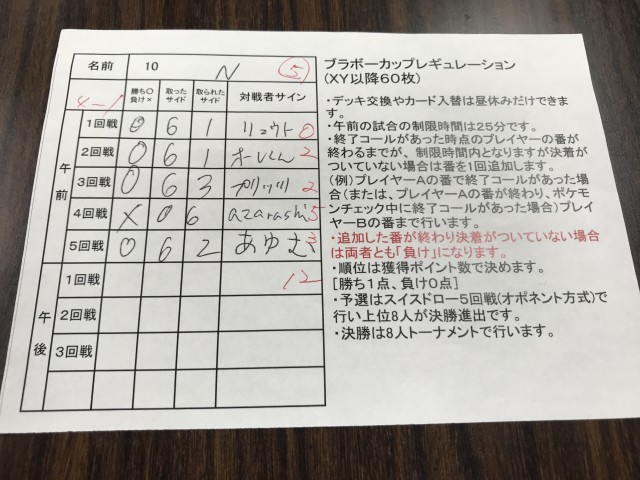 名前 10 N 5
4-1 勝ち○ 負け× 取ったサイド 取られたサイド 対戦者サイン
午前
1回戦 O 6 1 リュウト 0
2回戦 O 6 1 オーレくん 2
3回戦 O 6 3 2
4回戦 X 0 6 azarashi 5
5回戦 O 6 2 あゆむ 3
午後
1回戦 12
2回戦
3回戦
ブラボーカップレギュレーション
(XY以降60枚)
・デッキ交換やカード入替は昼休みだけできま
す。
・午前の試合の制限時間は25分です。
・終了コールがあった時点のプレイヤーの番が
終わるまでが、制限時間内となりますが決着が
ついていない場合は番を1回追加します。
(例)プレイヤーAの番で終了コールがあった場
合(または、プレイヤーAの番が終わり、ポケモ
ンチェック中に終了コールがあった場合)プレイ
ヤーBの番まで行います。
・追加した番が終わり決着がついていない場合
は両者とも「負け」になります。
・順位は獲得ポイント数で決めます。
[勝ち1点、負け0点]
・予選はスイスドロー5回戦(オポネント方式)で
行い上位8人が決勝進出です。
・決勝は8人トーナメントで行います。